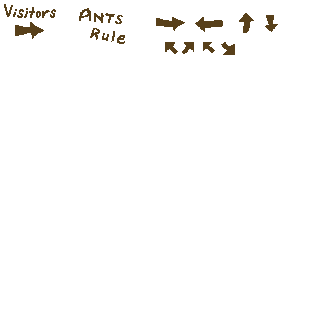 Visitors
ANTs
Rule